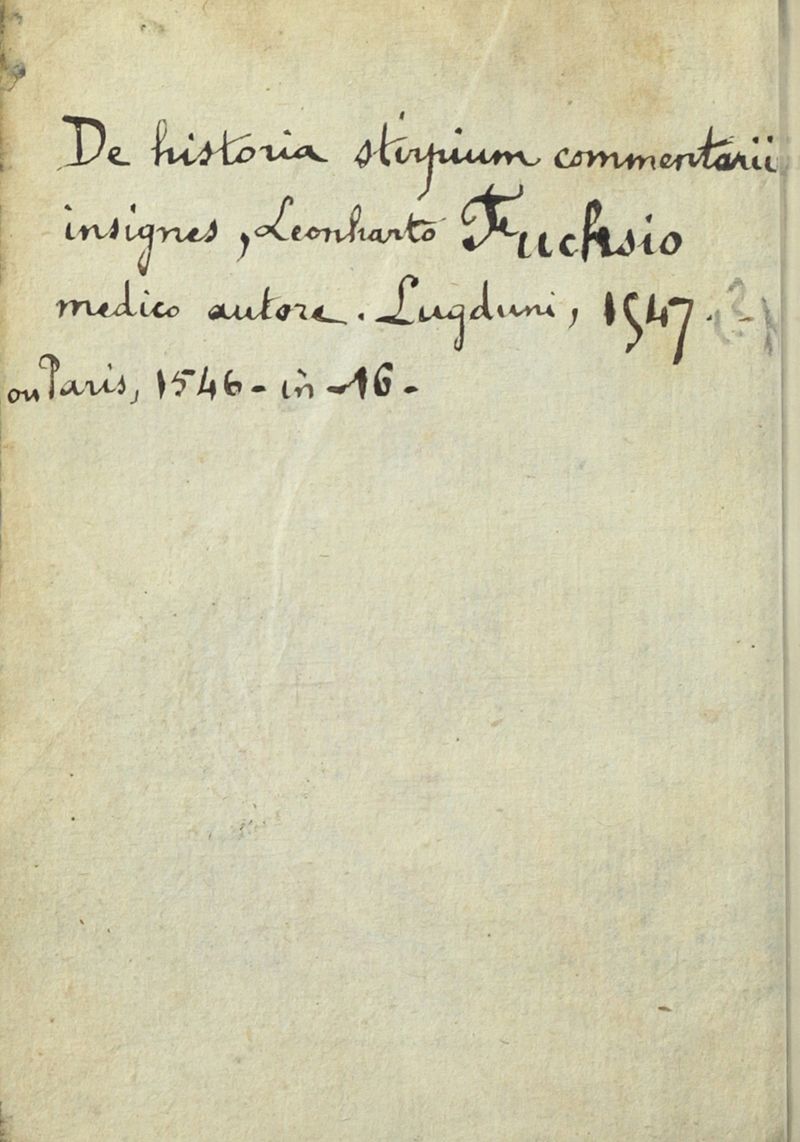 De historia stirpium commentarii
insignes, Leonharto Fuchsio
medico autore. Lugduni, 1547. (?) -
ou Paris, 1546 - in -16 -